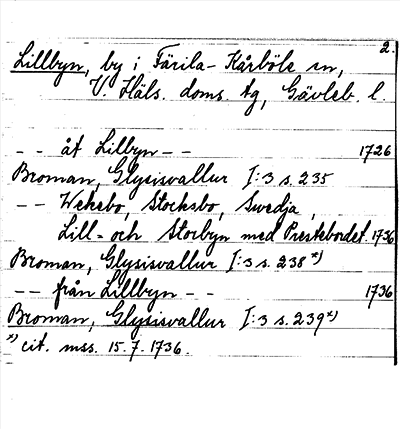 2.
Lillbyn, by i Färila-Kårböle sn,
V. Häls. doms. tg, Gävleb. l.
-- åt Lilbyn -- 1726
Broman, Glysisvallur I:3 s. 235
-- Wekebo, Stocksbo, Swedja,
Lill- och Storbyn med Prestebordet. 1736
Broman, Glysisvallur I:3 s. 238 *)
-- från Lillbyn -- 1736
Broman, Glysisvallur I:3 s. 239 *)
*) cit. mss. 15.7.1736.